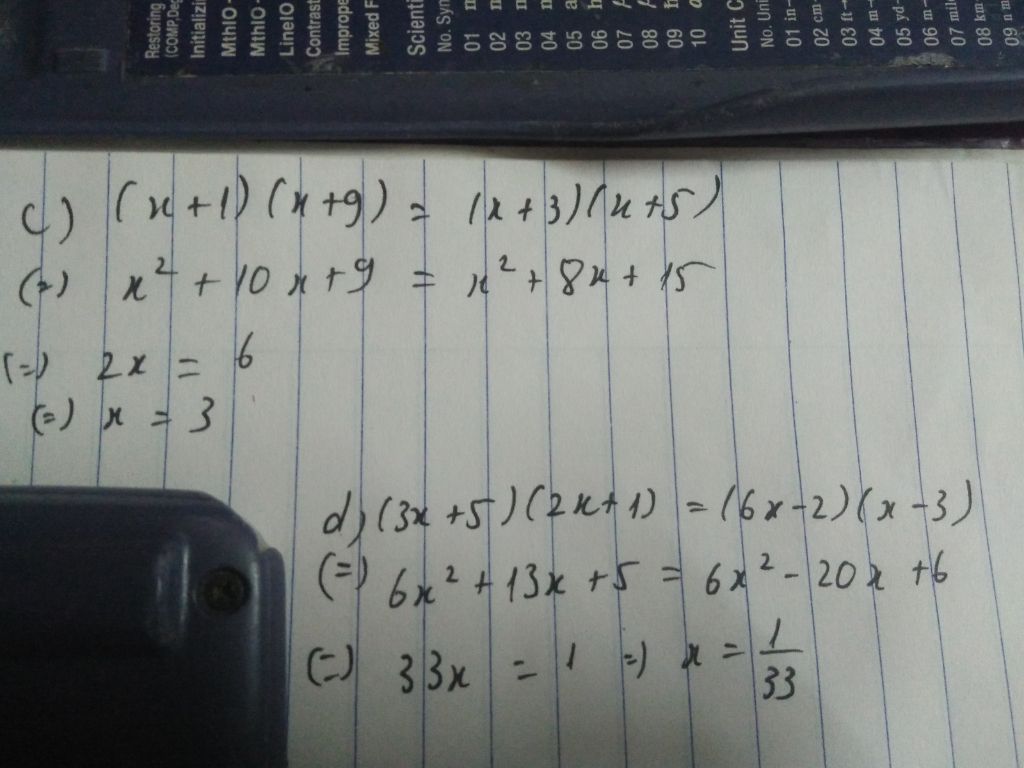 Restoring
(COMP,Deg
Initializin
MthIO -
MthIO -
LineIO
Contrast
Imprope
Mixed F
Scienti
No. Sym
01
02
03
04
05
06
07
08
09
10
Unit C
No. Uni
01 in→
02 cm→
03 ft→
04 m→
05 yd→
06 m→
07 mile
08 km
09 n m
c) (x+1)(x+9) = (x+3)(x+5)
(=) x² + 10x + 9 = x² + 8x + 15
(=) 2x = 6
(=) x = 3
d) (3x+5)(2x+1) = (6x-2)(x-3)
(=) 6x² + 13x + 5 = 6x² - 20x + 6
(=) 33x = 1 =) x = 1/33